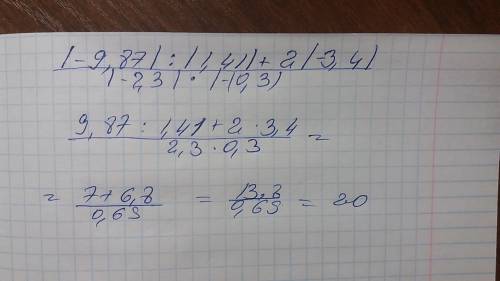 |-9,87| : |1,41| + 2|-3,4|
|-2,3| · |-(0,3)
9,87 : 1,41 + 2 · 3,4 =
2,3 · 0,3
= 7 + 6,8 = 13,8 = 20
0,69 0,69